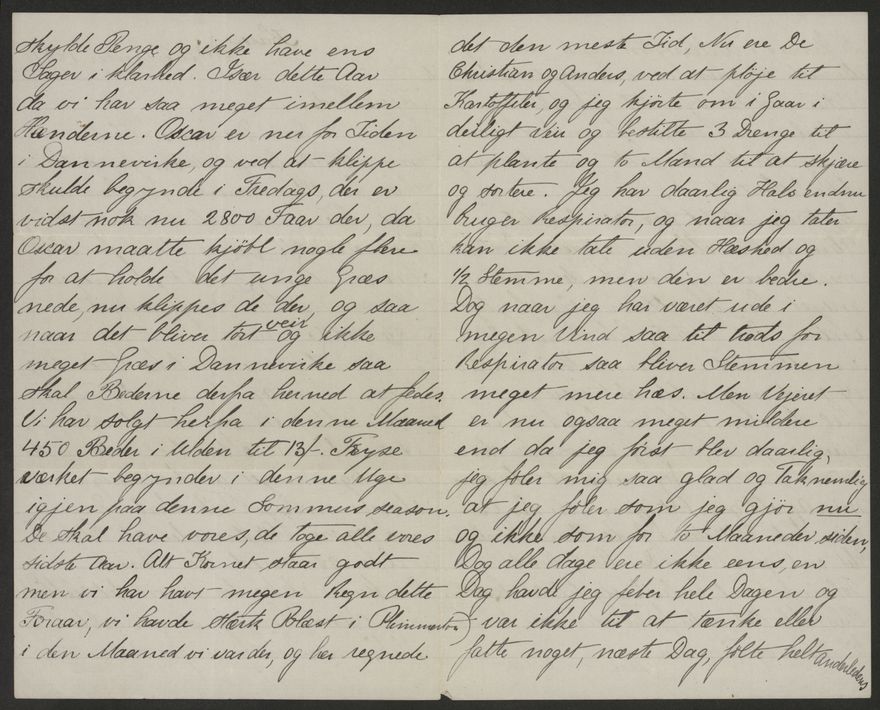 skylde Penge og ikke have ens
Sager i klarhed. Især dette Aar
da vi har saa meget imellem
Hænderne. Oscar er ner for Tiden
i Dannevirke, og ved at klippe
skulde begynde i Fredags, der er
vidst nok nu 2800 Faar der, da
Oscar maatte kjöbt nogle flere
for at holde det unge Græs
nede, nu klippes de der, og saa
naar det bliver tört veir og ikke
meget Græs i Dannevirke saa
skal Bederne derfra herned at fedes.
Vi har solgt herfra i denne Maaned
450 Beder i Ulden til 13/-. Fryse
værket begynder i denne Uge
igjen paa denne Sommers season.
De skal have vores, de toge alle vores
sidste Aar. Alt Kornet staar godt
men vi har havt megen Regn dette
Foraar, vi havde stærk Blæst i Plimmerton
i den Maaned vi var der, og her regnede
det den meste Tid, Nu ere De
Christian og Anders, ved at plöje til
Kartoffeler, og jeg kjörte om i Gaar i
deiligt Veir og bestilte 3 Drenge til
at plante og to Mand til at skjære
og sortere. Jeg har daarlig Hals endnu
bruger Respirator, og naar jeg taler
kan ikke tale uden Hæshed og
1/2 Stemme, men den er bedre.
Dog naar jeg har været ude i
megen Vind saa til trods for
Respirator saa bliver Stemmen
meget mere hæs. Men Vejeret
er nu ogsaa meget mildere
end da jeg först blev daarlig,
jeg föler mig saa glad og Taknemlig
at jeg föler som jeg gjör nu
og ikke som for to Maaneder siden,
Dog alle dage ere ikke eens, en
Dag havde jeg feber hele Dagen og
var ikke til at tænke eller
fatte noget, næste Dag, fölte helt anderledens